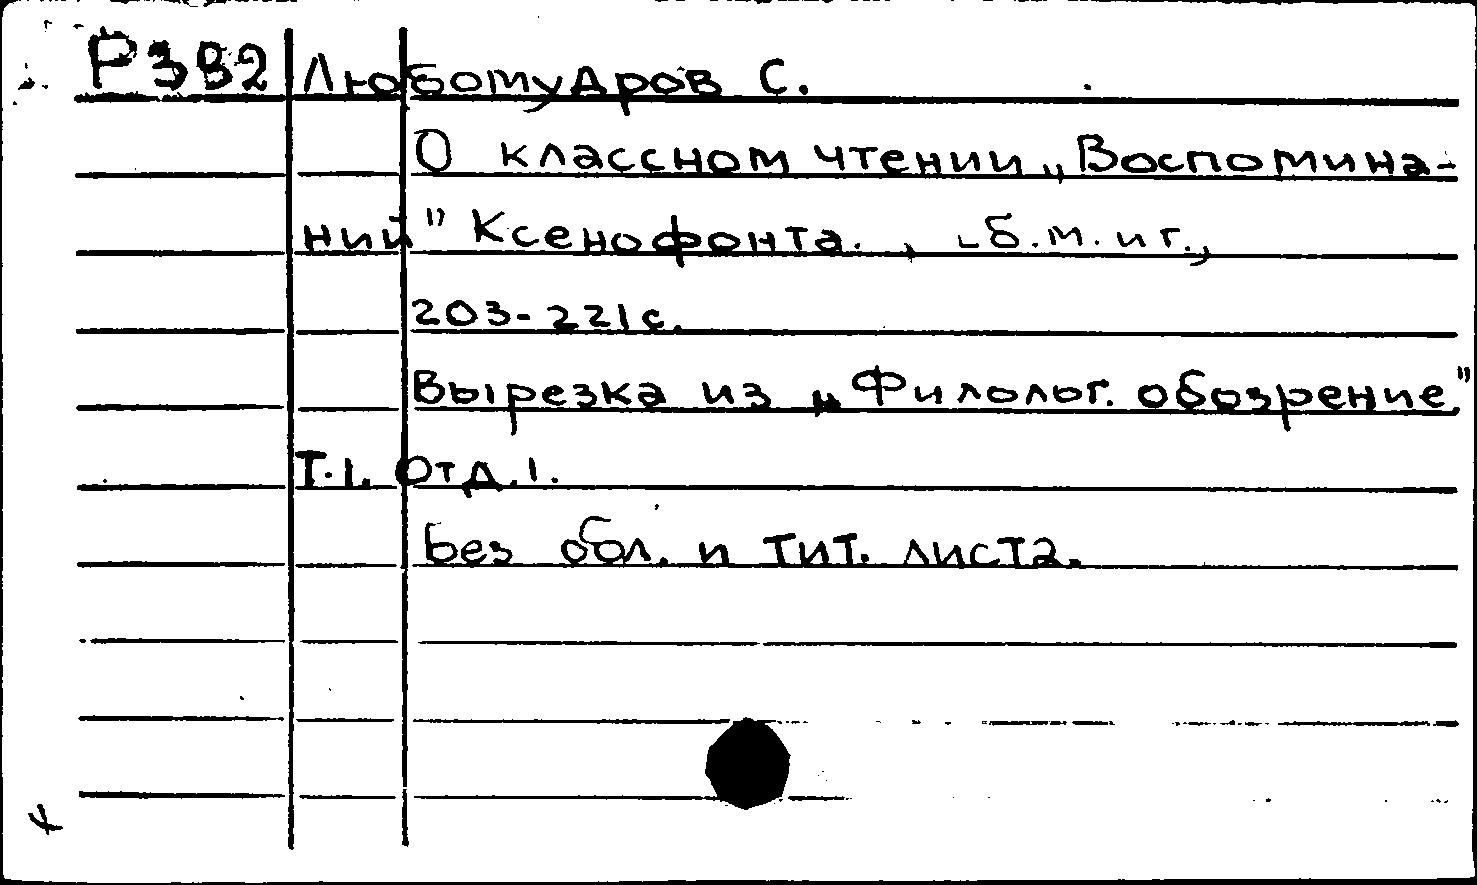 Р3В2 Любомудров С.
О классном чтении „Воспомина-
ний" Ксенофонта. , -б.м. и г.,
203-221с.
Вырезка из „Филолог. обозрение"
Т.1. Отд.1.
Без обл. и тит. листа.